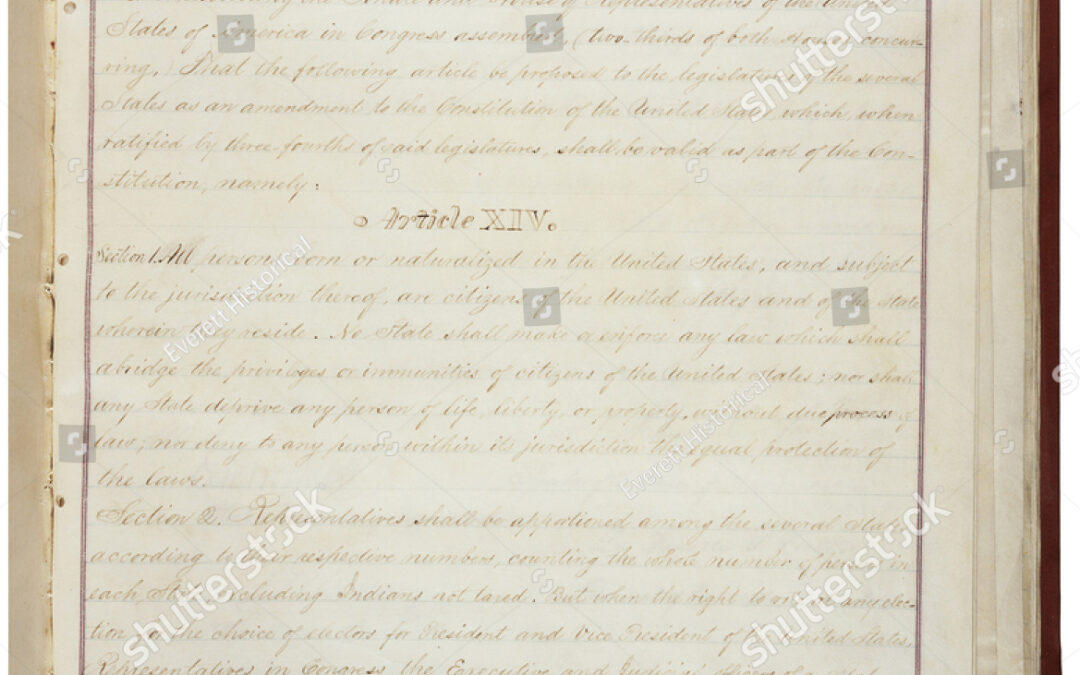 by the Senate and House of Representatives of the United
States of America in Congress assembled, (two-thirds of both Houses concur-
ring,) That the following article be proposed to the legislatures of the several
States as an amendment to the Constitution of the United States, which, when
ratified by three-fourths of said legislatures, shall be valid as part of the Con-
stitution, namely:
Article XIV.
Section 1. All persons born or naturalized in the United States, and subject
to the jurisdiction thereof, are citizens of the United States and of the State
wherein they reside. No State shall make or enforce any law which shall
abridge the privileges or immunities of citizens of the United States; nor shall
any State deprive any person of life, liberty, or property, without due process of
law; nor deny to any person within its jurisdiction the equal protection of
the laws.
Section 2. Representatives shall be apportioned among the several States
according to their respective numbers, counting the whole number of persons in
each State, excluding Indians not taxed. But when the right to vote at any elec-
tion for the choice of electors for President and Vice President of the United States,
Representatives in Congress, the Executive and Judicial officers of a State
shutterstock
Everett Historical
shutterstock
Everett Historical
shutterstock
shutterstock